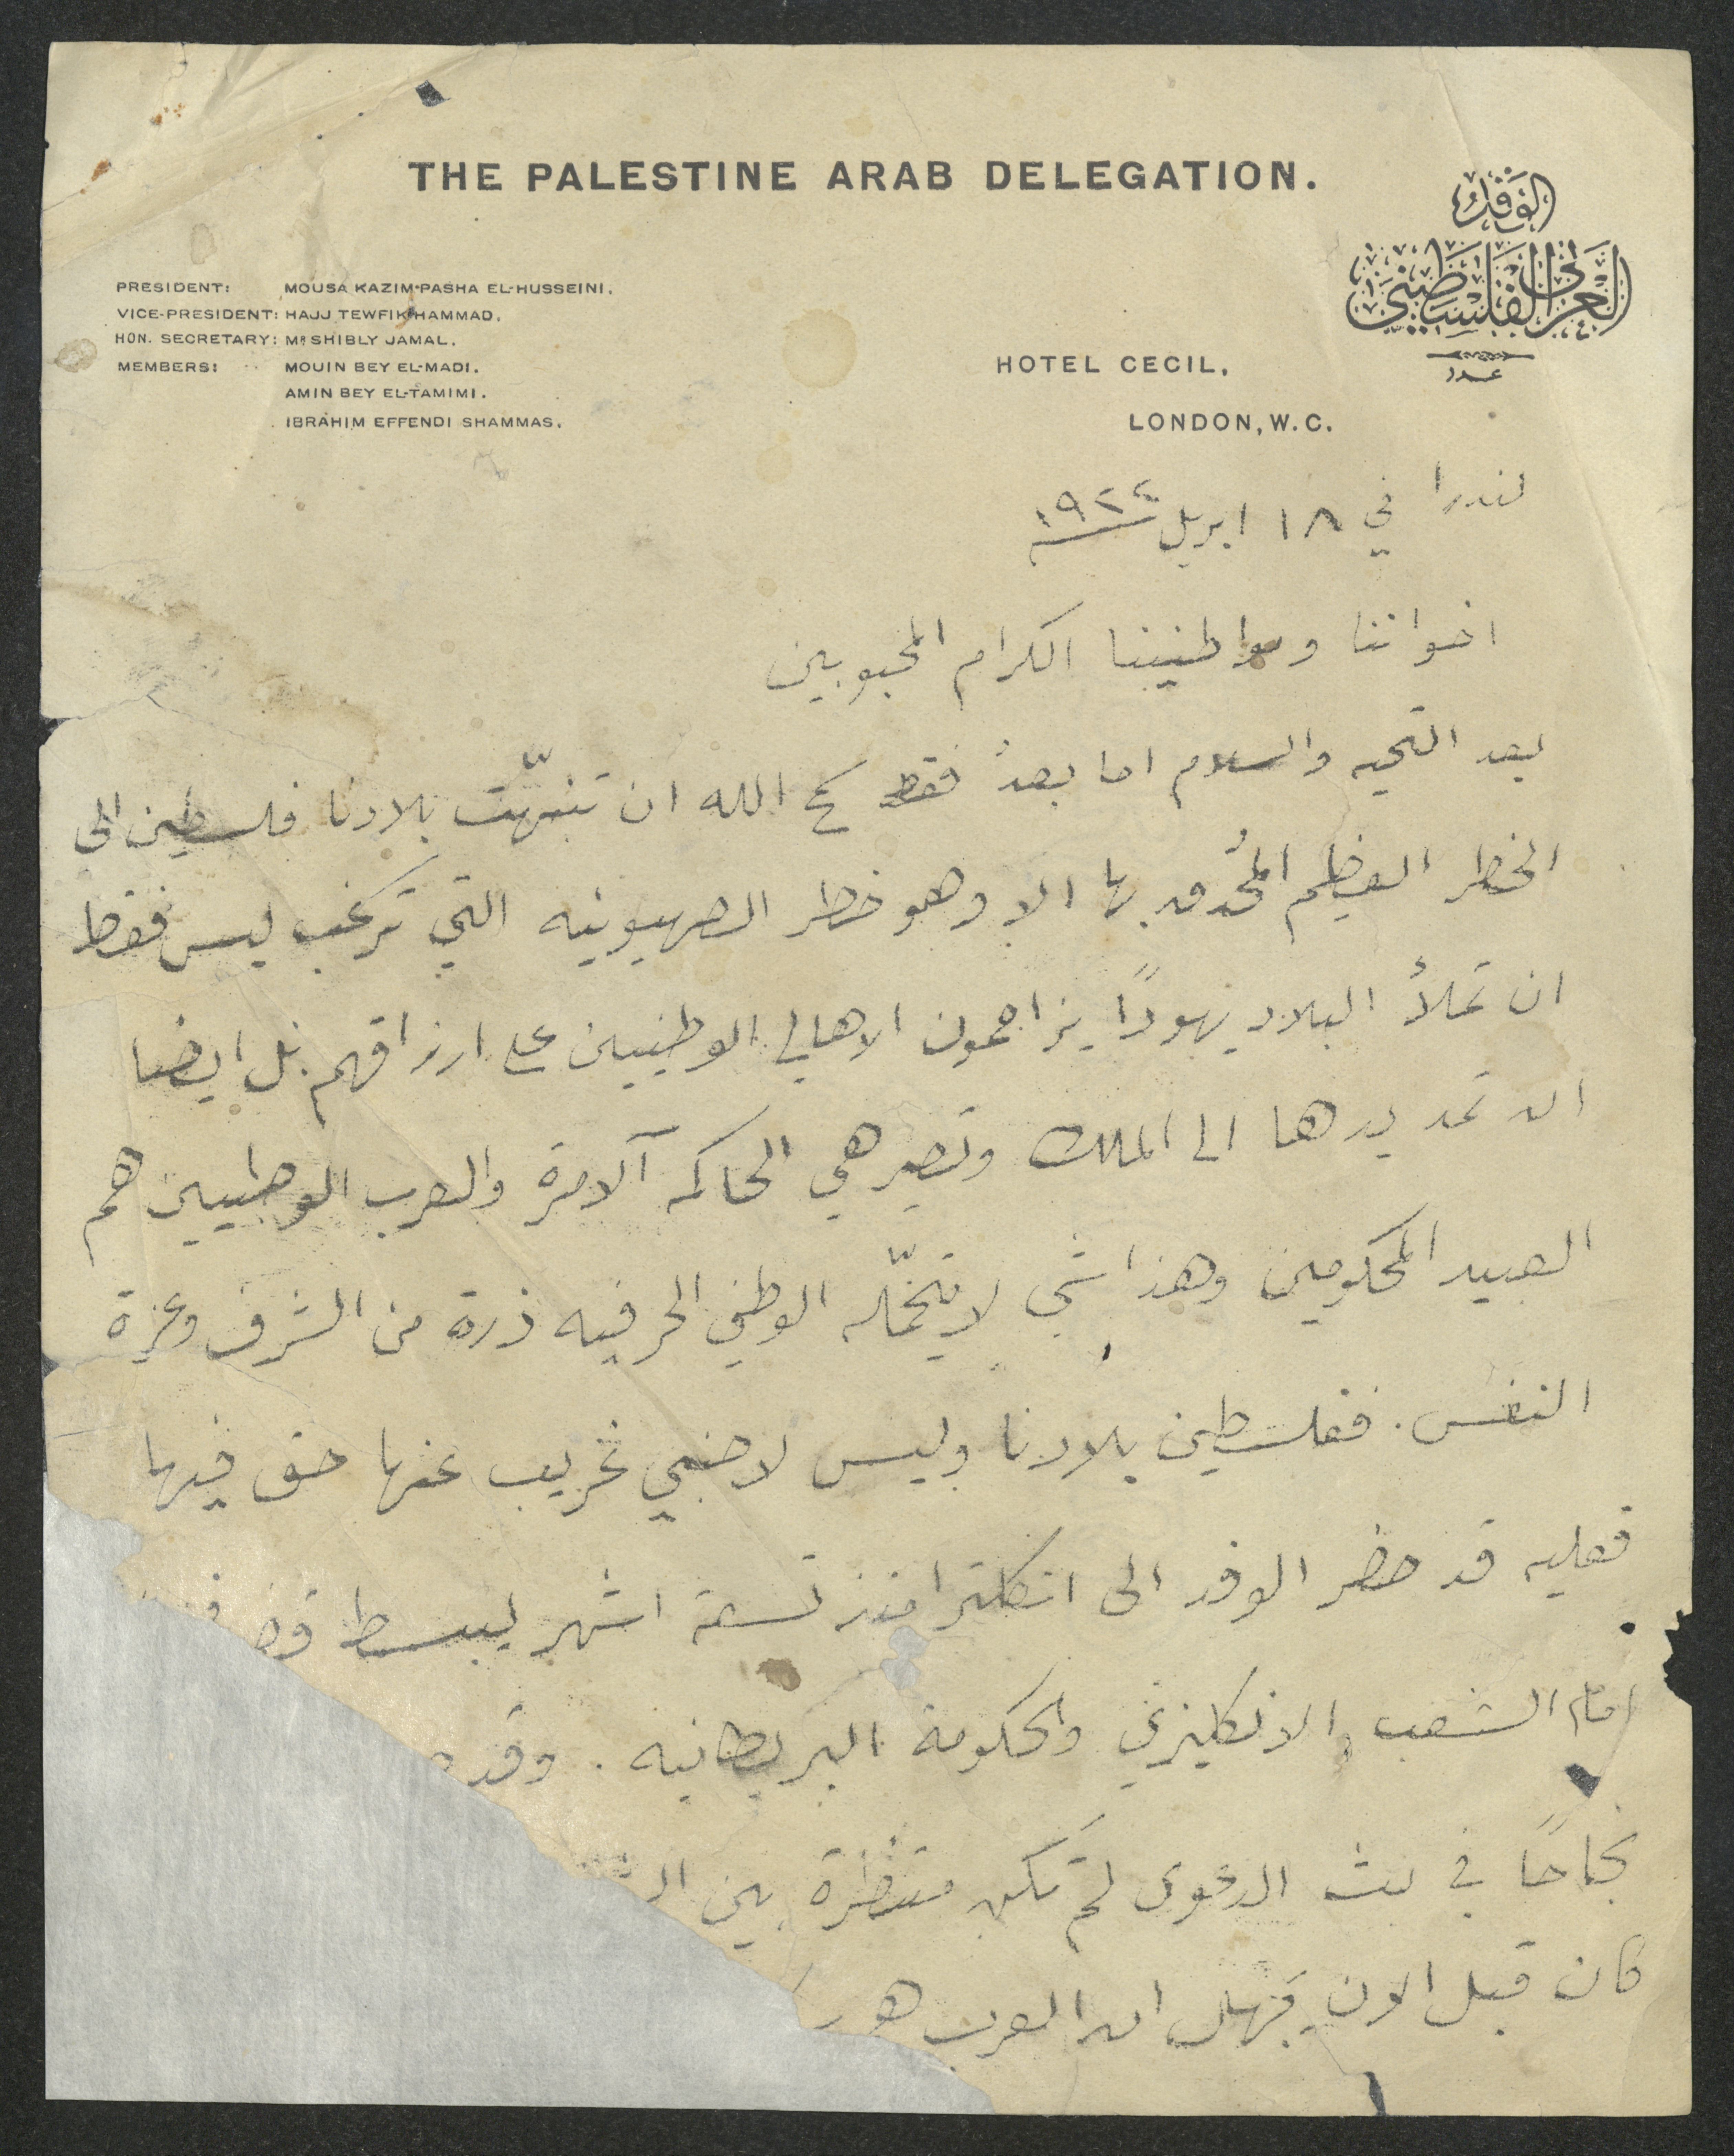 THE PALESTINE ARAB DELEGATION.
الوفد
العربي الفلسطيني
عدد
PRESIDENT: MOUSA KAZIM PASHA EL-HUSSEINI.
VICE-PRESIDENT: HAJJ TEWFIK HAMMAD.
HON. SECRETARY: MR SHIBLY JAMAL.
MEMBERS: MOUIN BEY EL-MADI.
AMIN BEY EL-TAMIMI.
IBRAHIM EFFENDI SHAMMAS.
HOTEL CECIL.
LONDON, W.C.
لندرا في ١٨ ابريل ١٩٢٢
اخواننا ومواطنيننا الكرام المحبوبين
بعد التحيه والسلام اما بعدُ فقد الله ان تنبّهت بلادنا فلسطين الى
الخطر العظيم المُحدق بها الا وهو خطر الصهيونيه التي ترغب ليس فقط
ان تملأُ البلاد يهودًا يزاحمون الاهالي الوطنيين على ارزاقهم بل ايضا
ان تمد يدها الى الملك وتصير هي الحاكمه آلامرة والعرب الوطنيين هم
العبيد المحكومين وهذا شي لا يتحمّله الوطني الحر فيه ذرة من الشرف وعزة
النفس. ففلسطين بلادنا وليس لاجنبي غريب عنها حق فيها
فعليه قد حضر الوفد الى انكلترا منذ تسعة اشهر ليبسط
امام الشعب الانكليزي والحكومة البريطانيه. وقد
نجاحًا في بث الدعوى لم تكن منتظرة بين
كان قبل الان يجهل ان العرب